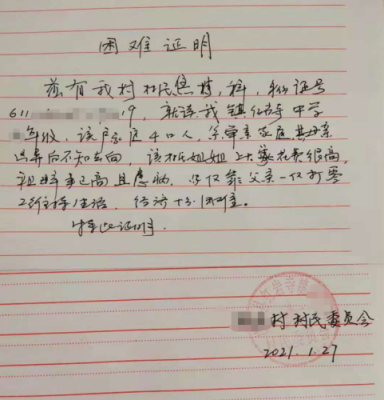 困难证明
兹有我村村民 身份证号
611 19,就读我镇 中学
年级,该户家庭4口人, 家庭其母亲
出 后不知去向,该村民姐姐上大 花费很高,
祖母年事已高且患病, 仅靠父亲一人打零
工维持生活,经济十分困难。
特此证明。
村村民委员会
2021.1.27